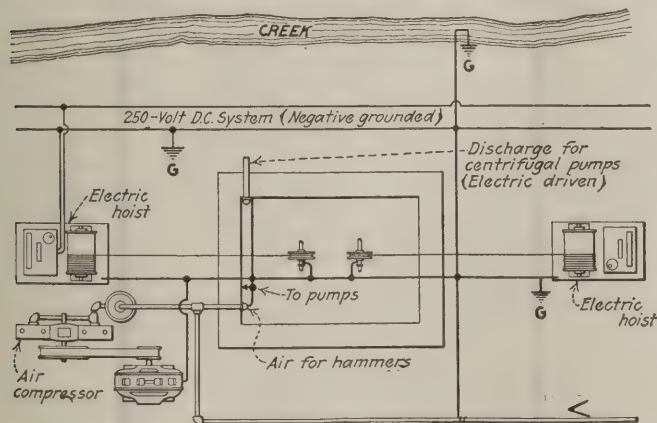 CREEK
G
250-Volt D.C. System (Negative grounded)
G
Discharge for
centrifugal pumps
(Electric driven)
Electric
hoist
To pumps
G
Electric
hoist
Air for hammers
Air
compressor